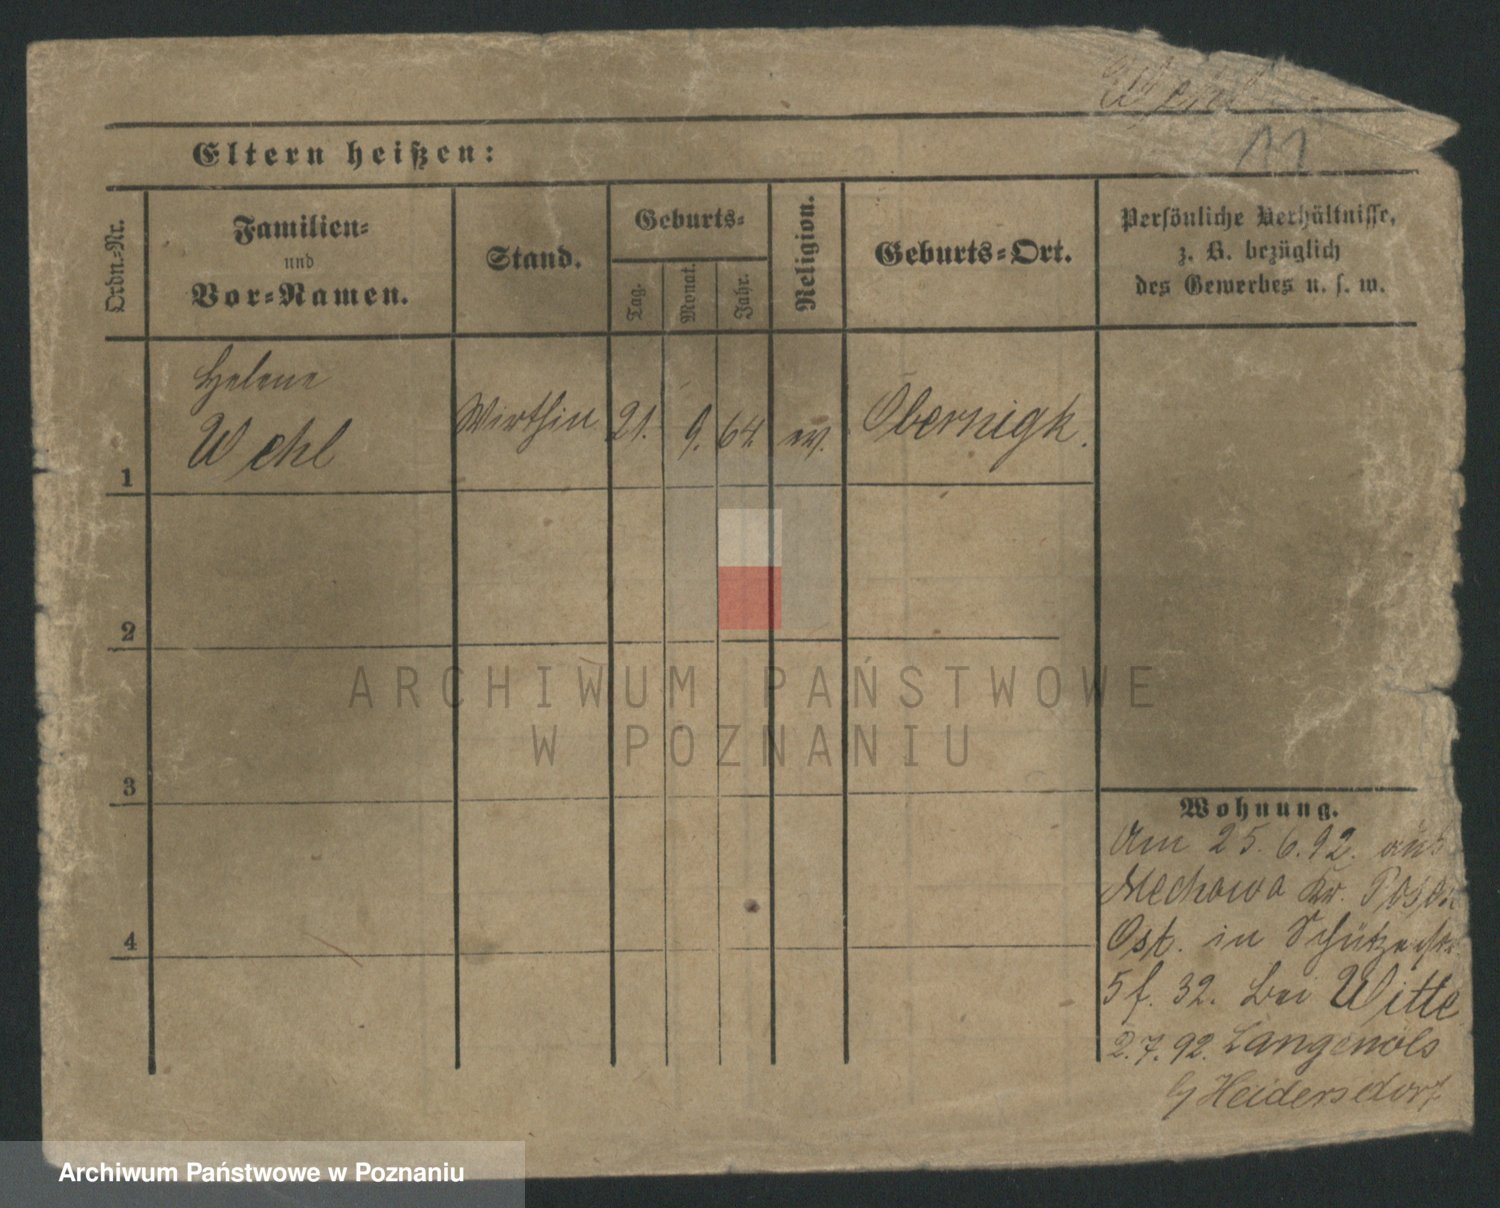 11
Eltern heißen:
Ordn.-Nr.
Familien-
und
Vor-Namen.
Stand.
Geburts-
Tag.
Monat.
Jahr.
Religion.
Geburts-Ort.
Persönliche Verhältnisse,
z. B. bezüglich
des Gewerbes u. s. w.
1
Helene
Wehl
Wirthin
21.
9.
64.
ev.
Obernigk.
2
3
4
Wohnung.
Am 25.6.92. aus
Mechowo Kr. Posen
Ost. in Schützenstr.
5 f. 32. bei Witte
2.7.92. Langenöls
b/ Heidersdorf
ARCHIWUM PAŃSTWOWE
W POZNANIU
Archiwum Państwowe w Poznaniu